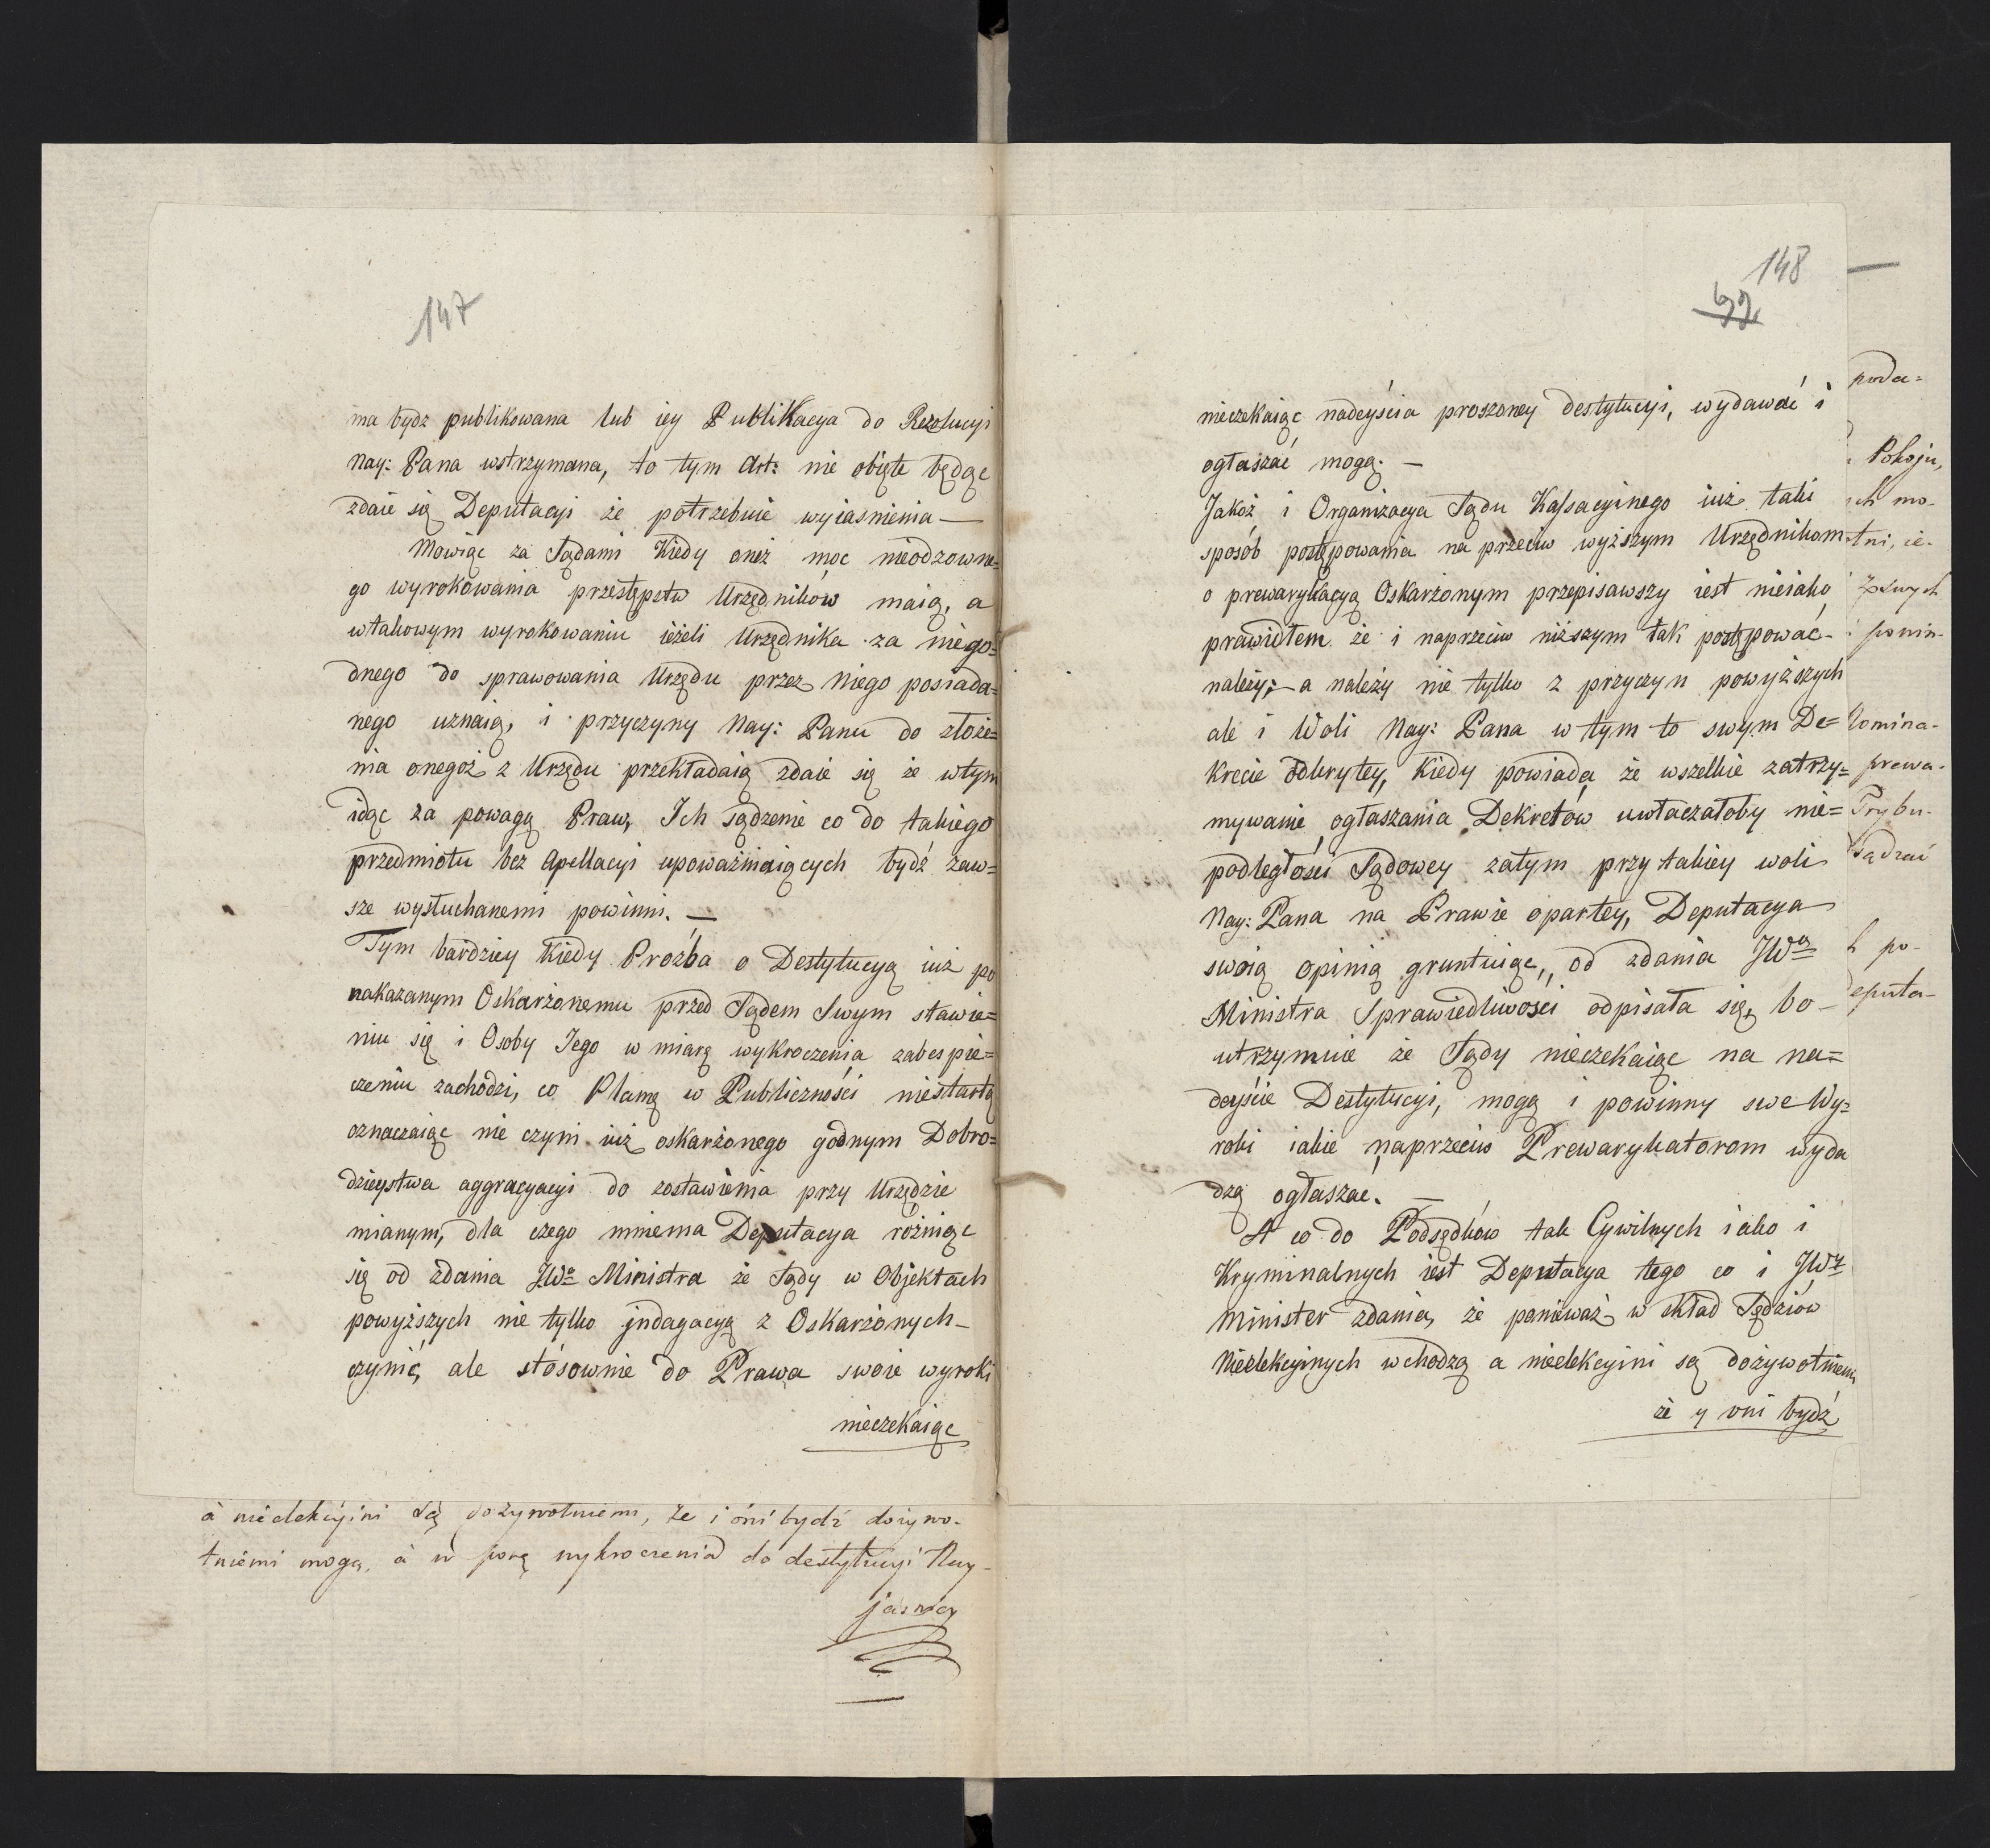 147
ma bydz publikowana lub iey Publikacya do Rezolucyi
Nay: Pana wstrzymana, to tym Art: nie obięte będąc
zdaie się Deputacyi że potrzebuie wyiasnienia —
Mowiąc za Sądami Kiedy oneż moc nieodzowne=
go wyrokowania przestępstw Urzędników maią, a
wtakowym wyrokowaniu ieżeli Urzędnika za niego=
dnego do sprawowania Urzędu przez Niego posiada=
nego uznaią, i przyczyny Nay: Panu do złoże=
nia onegoż z Urzędu przekładaią zdaie się że wtym
idąc za powagą Praw, Ich sądzenie co do takiego
przedmiotu bez Apellacyi upoważniaiących bydź zaw=
sze wysłuchanemi powinni. —
Tym bardziey Kiedy Prozba o Destytucyą iuż po
nakazanym Oskarżonemu przed Sądem Swym stawie=
niu się i Osoby Jego w miarę wykroczenia zabespie=
czeniu zachodzi, co Plamę w Publiczności niestartą
oznaczaiąc nie czyni iuż oskarżonego godnym Dobro=
dzieystwa aggracyacyi do zostawienia przy Urzędzie
mianym, dla czego mniema Deputacya różniąc
się od zdania JWo Ministra że Sądy w Objektach
powyższych nie tylko jndagacyą z Oskarżonych —
czynić, ale stósownie do Prawa swoie wyroki
nieczekaiąc
à nieelekcyini są dożywotniemi, że i óni bydź dożywo-
tniemi mogą, à w porę wykroczenia do destytucyi Nay-
jasney
148
99.
nieczekaiąc nadeyścia proszoney destytucyi, wydawać i
ogłaszać mogą. —
Jakoż i Organizacya Sądu Kassacyinego iuż taki
sposób postępowania na przeciw wyższym Urzędnikom
o prewarykacyą Oskarżonym przepisawszy iest nieiako
prawidłem że i naprzeciw niższym tak postępować —
należy; — a należy nie tylko z przyczyn powyższych
ale i Woli Nay: Pana w tym to swym De=
krecie odkrytey, Kiedy powiada że wszelkie zatrzy=
mywanie ogłaszania Dekretów uwłaczałoby nie=
podległości Sądowey zatym przy takiey woli
Nay: Pana na Prawie opartey, Deputacya
swoią opinią gruntuiąc, od zdania JWo
Ministra Sprawiedliwości odpisała się, bo —
utrzymuie że Sądy nieczekaiąc na na=
deyście Destytucyi, mogą i powinny swe Wy=
roki iakie naprzeciw Prewarykatorom wyda
dzą ogłaszac. —
A co do Podsędków tak Cywilnych iako i
Kryminalnych iest Deputacya tego co i JWy
Minister zdania, że ponieważ w skład Sędziów
Nieelekcyinych wchodzą a nieelekcyini są dożywotniemi
że y oni bydź
poda=
Pokoju,
ch mo-
tni, ie-
powin-
Nomina-
prewa-
Trybu-
Sądzać
h po-
eputa-